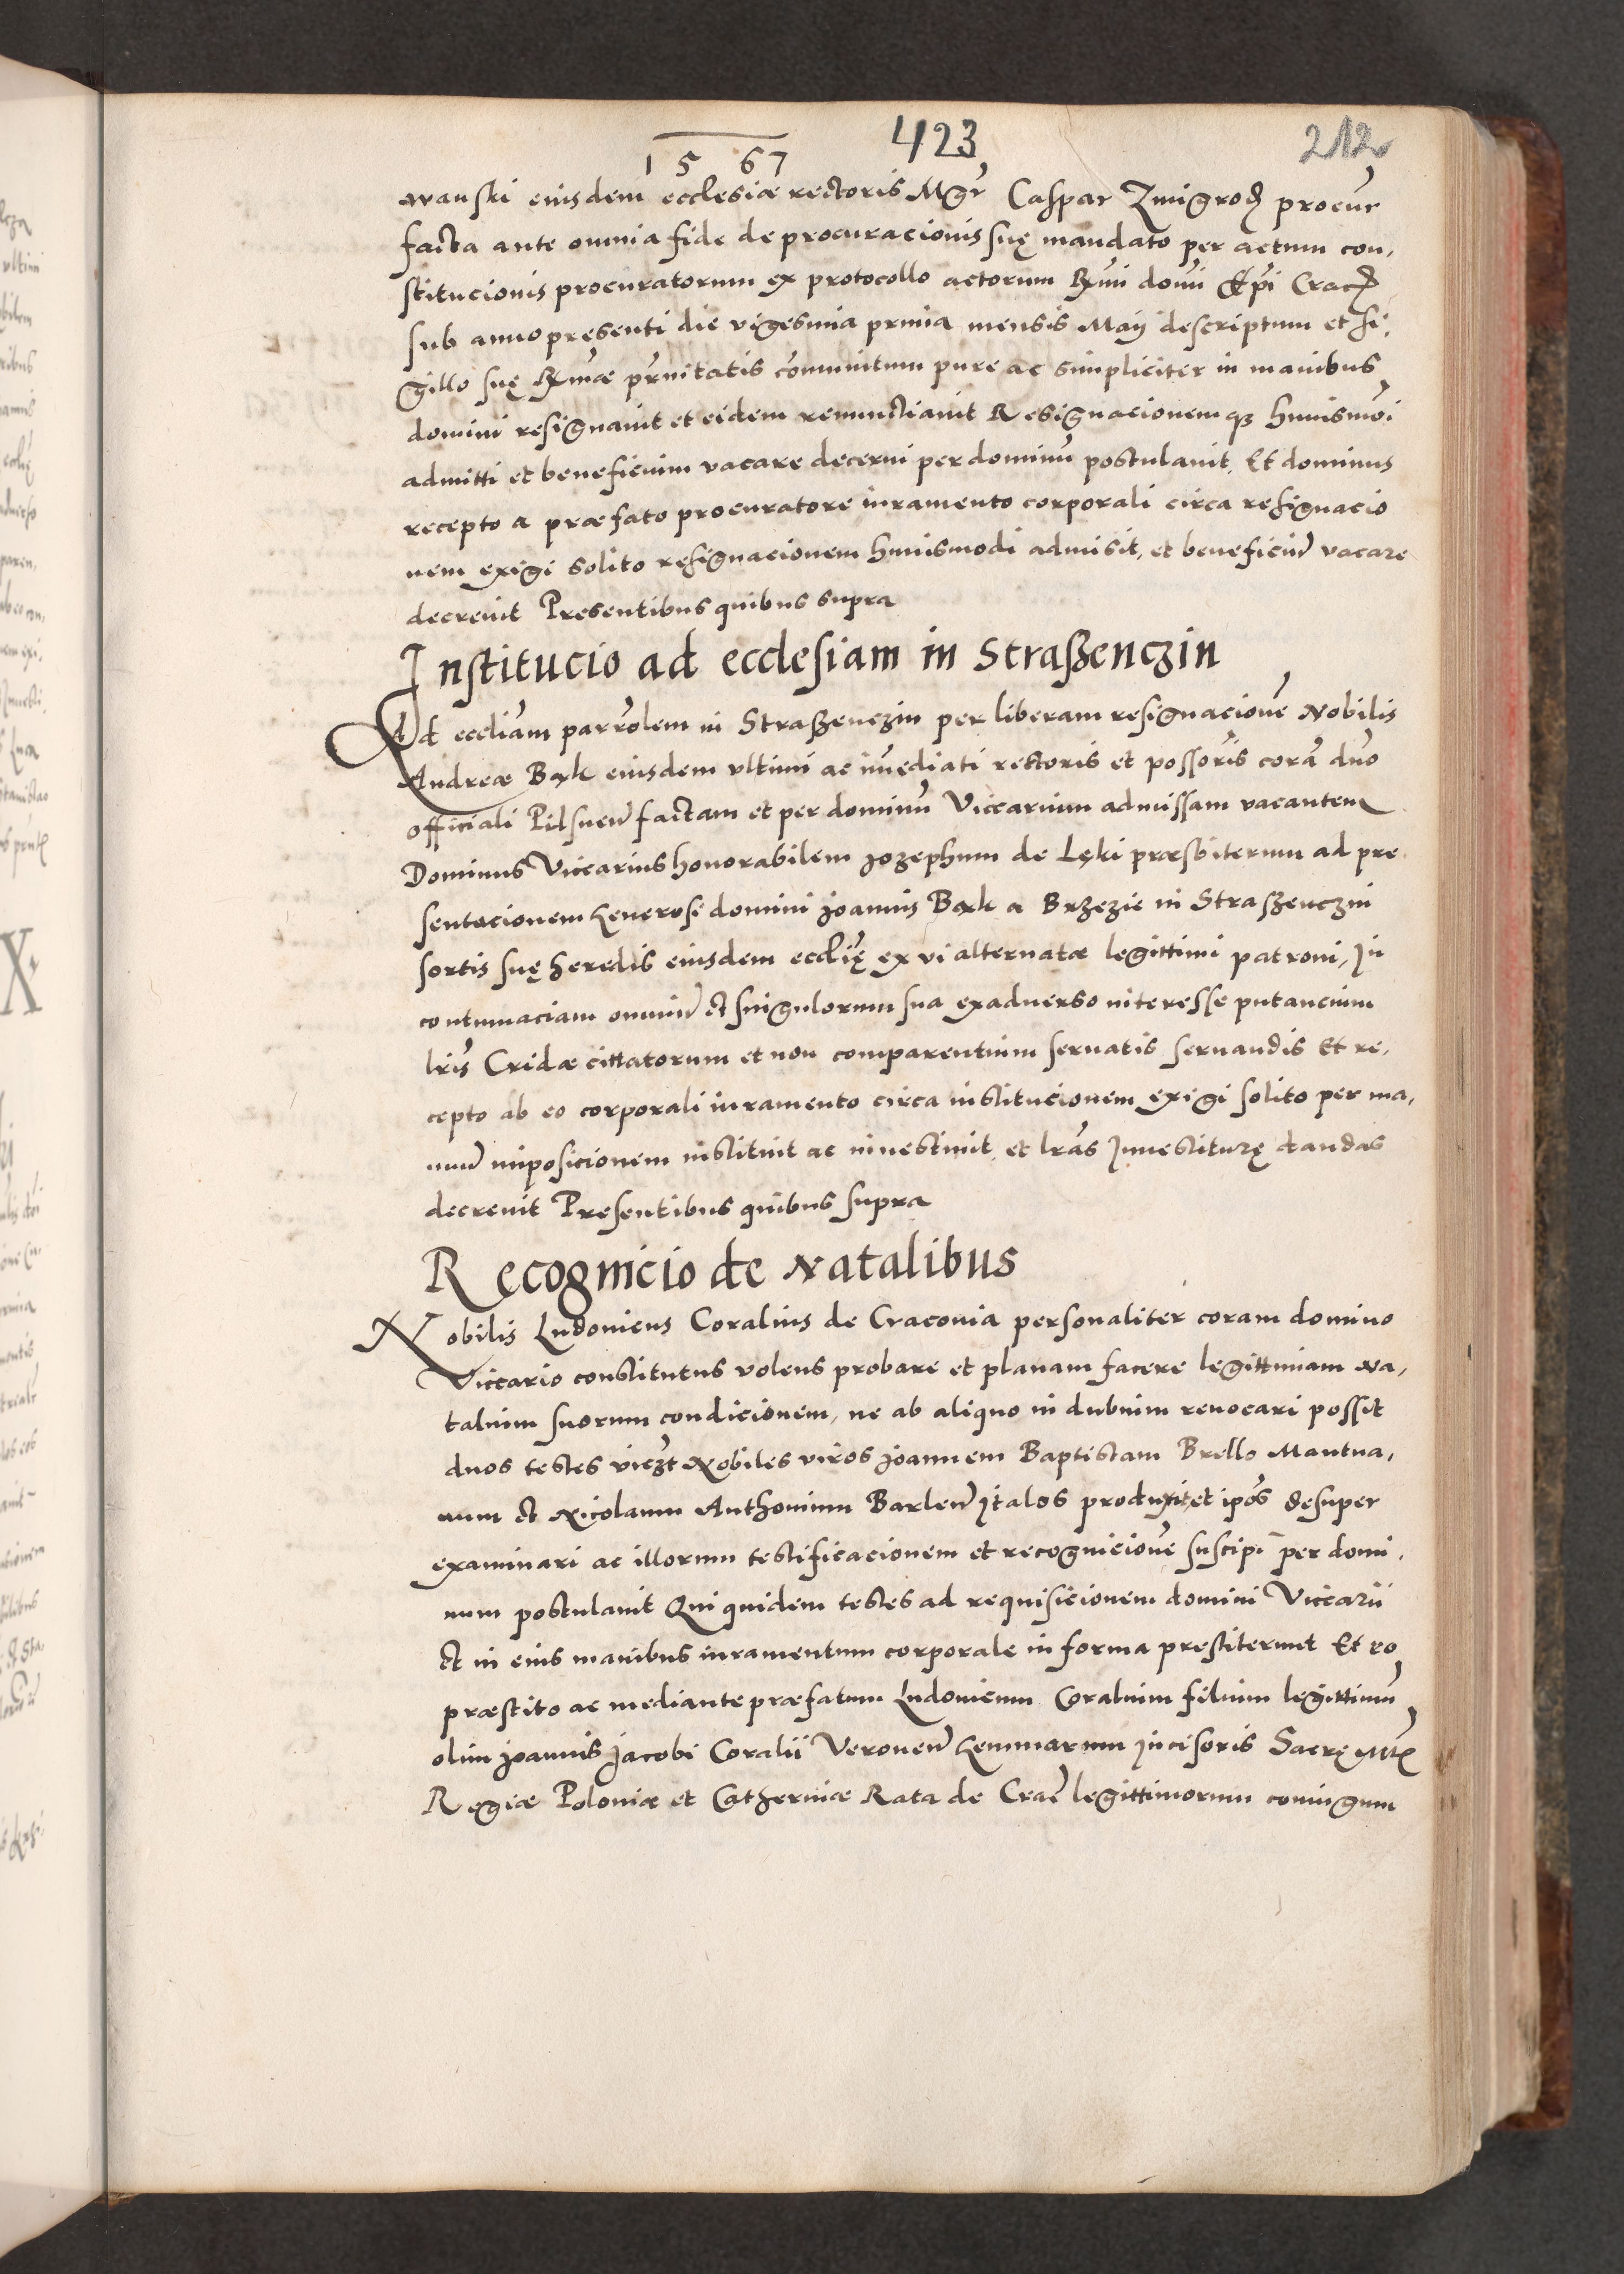 423
212
1567
wanski eiusdem ecclesiæ rectoris Mgr̃ Caspar Zmigrod procur̃
facta ante omnia fide de procuracionis suę mandato per actum con,
stitucionis procuratorum ex protocollo actorum Rx̃mi domi Ep̃i Crac
sub anno pręsenti die vigesima prima mensis Maij descriptum et si,
gillo suę Rx̃mæ pr̃nitatis com̃unitum pure ac simpliciter in manibus
domini resignauit et eidem renunctiauit Resignacionemqȝ huiusmõi
admitti et beneficium vacare decerni per dominũ postulauit. Et dominus
recepto a præfato procuratore iuramento corporali circa resignacio
nem exigi solito resignacionem huiusmodi admisit, et beneficiũ vacare
decreuit Presentibus quibus supra
Institucio ad ecclesiam in Straszenczin
Ad eccliãm parrõlem in Straszenczin per liberam resignacionẽ Nobilis
Andreæ Bąk eiusdem vltimi ac im̃ediati rectoris et possoris̃ corã dño
officiali Pilsnen̄ factam et per dominũ Viccarium admissam vacantem
Dominus Viccarius honorabilem Jozephum de Lęki præsbiterum ad pre
sentacionem Generosi domini Joannis Bąk a Brzezie in Straszenczin
sortis suę heredis eiusdem ecclię̃ ex vi alternatæ legittimi patroni, In
contumaciam omniũ et singulorum sua exaduerso interesse putancium
lrĩs Cridæ cittatorum et non comparentium seruatis seruandis Et re,
cepto ab eo corporali iuramento circa institucionem exigi solito per ma,
nuũ imposicionem instituit ac inuestiuit, et lrãs Inuestiturę dandas
decreuit Presentibus quibus supra
Recognicio de Natalibus
Nobilis Ludouicus Coralius de Cracouia personaliter coram domino
Viccario constitutus volens probare et planam facere legittimam Na,
talium suorum condicionem, ne ab aliquo in dubium reuocari possit
duos testes viczt̃ Nobiles viros Joannem Baptistam Brello Mantua,
num et Nicolaum Anthonium Barlen̄ Italos produxit, et ipõs desuper
examinari ac illorum testificacionem et recognicionẽ suscipi per domi,
num postulauit Qui quidem testes ad requisicionem domini Viccarii
et in eius manibus iuramentum corporale in forma prestiterunt Et eo
præstito ac mediante præfatum Ludouicum Coralium filium legittimũ
olim Joannis Jacobi Coralii Veronen̄ Gemmarum Incisoris Sacrę Mtis
Regiæ Poloniæ et Catherinæ Rata de Crac̃ legittimorum coniugum